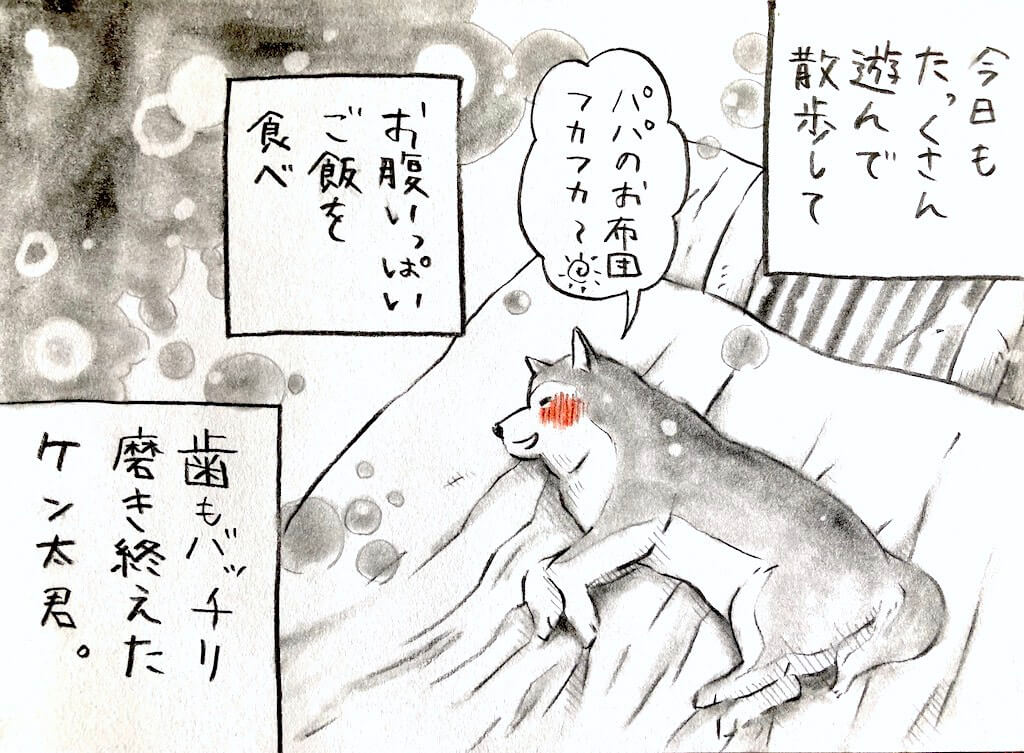 今日も
たっくさん
遊んで
散歩して
パパのお布団
フカフカ〜
お腹いっぱい
ご飯を
食べ
歯もバッチリ
磨き終えた
ケン太君。